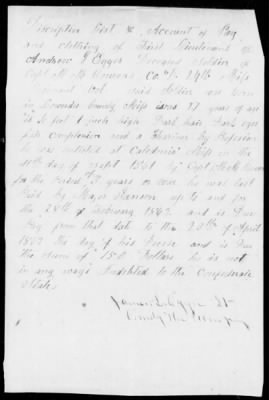 Discription List & Account of Pay
and clothing of First Lieutenant of
Andrew J Egger Deceased Soldier of
Capt Co 24th Miss
Regiment Vol said Soldier was born
in Lowndes County Miss is 27 years of age
is 5 feet 1 inch high Dark hair Dark eyes
fair complexion and a Farmer By Profession
he was enlisted at Caledonia Miss on the
day of Sept 1861 By Capt
for the Period of 3 years or war he was last
Paid By Major up to and for
the 28th of February 1862 and is Due
Pay from that date to the 20th of April
1862 the day of his Death and is Due
the sum of 150 Dollars he is not
in any ways Indebted to the Confederate
States
James L Egger Lt
Comdg the Company